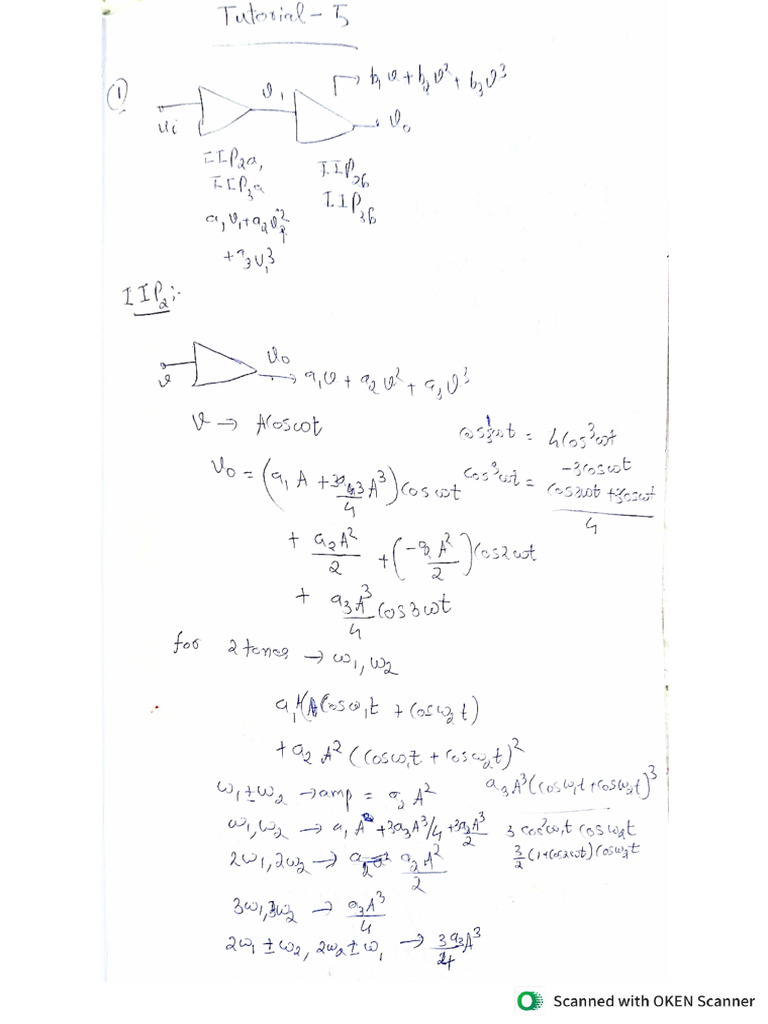 Tutorial - 5
① vi v1 → b1v + b2v² + b3v³
vo
IIP2a, IIP2b
IIP3a IIP3b
a1v1+a2v1²
+a3v1³
IIP2:-
v vo → a1v + a2v² + a3v³
v → Acosωt
cos3ωt = 4cos³ωt
-3cosωt
cos³ωt = cos3ωt + 3cosωt / 4
vo = (a1A + 3a3A³/4) cosωt
+ a2A²/2 + (-a2A²/2) cos2ωt
+ a3A³/4 cos3ωt
for 2 tones → ω1, ω2
a1A(cosω1t + cosω2t)
+a2A²(cosω1t + cosω2t)²
a3A³(cosω1t + cosω2t)³
ω1±ω2 → amp = a2A²
ω1, ω2 → a1A+3a3A³/4 +3a3A³/2
3cos²ω1t cosω2t
3/2 (1+cos2ωt)cosω2t
2ω1, 2ω2 → a2A²/2
3ω1, 3ω2 → a3A³/4
2ω1±ω2, 2ω2±ω1 → 3a3A³/4
Scanned with OKEN Scanner